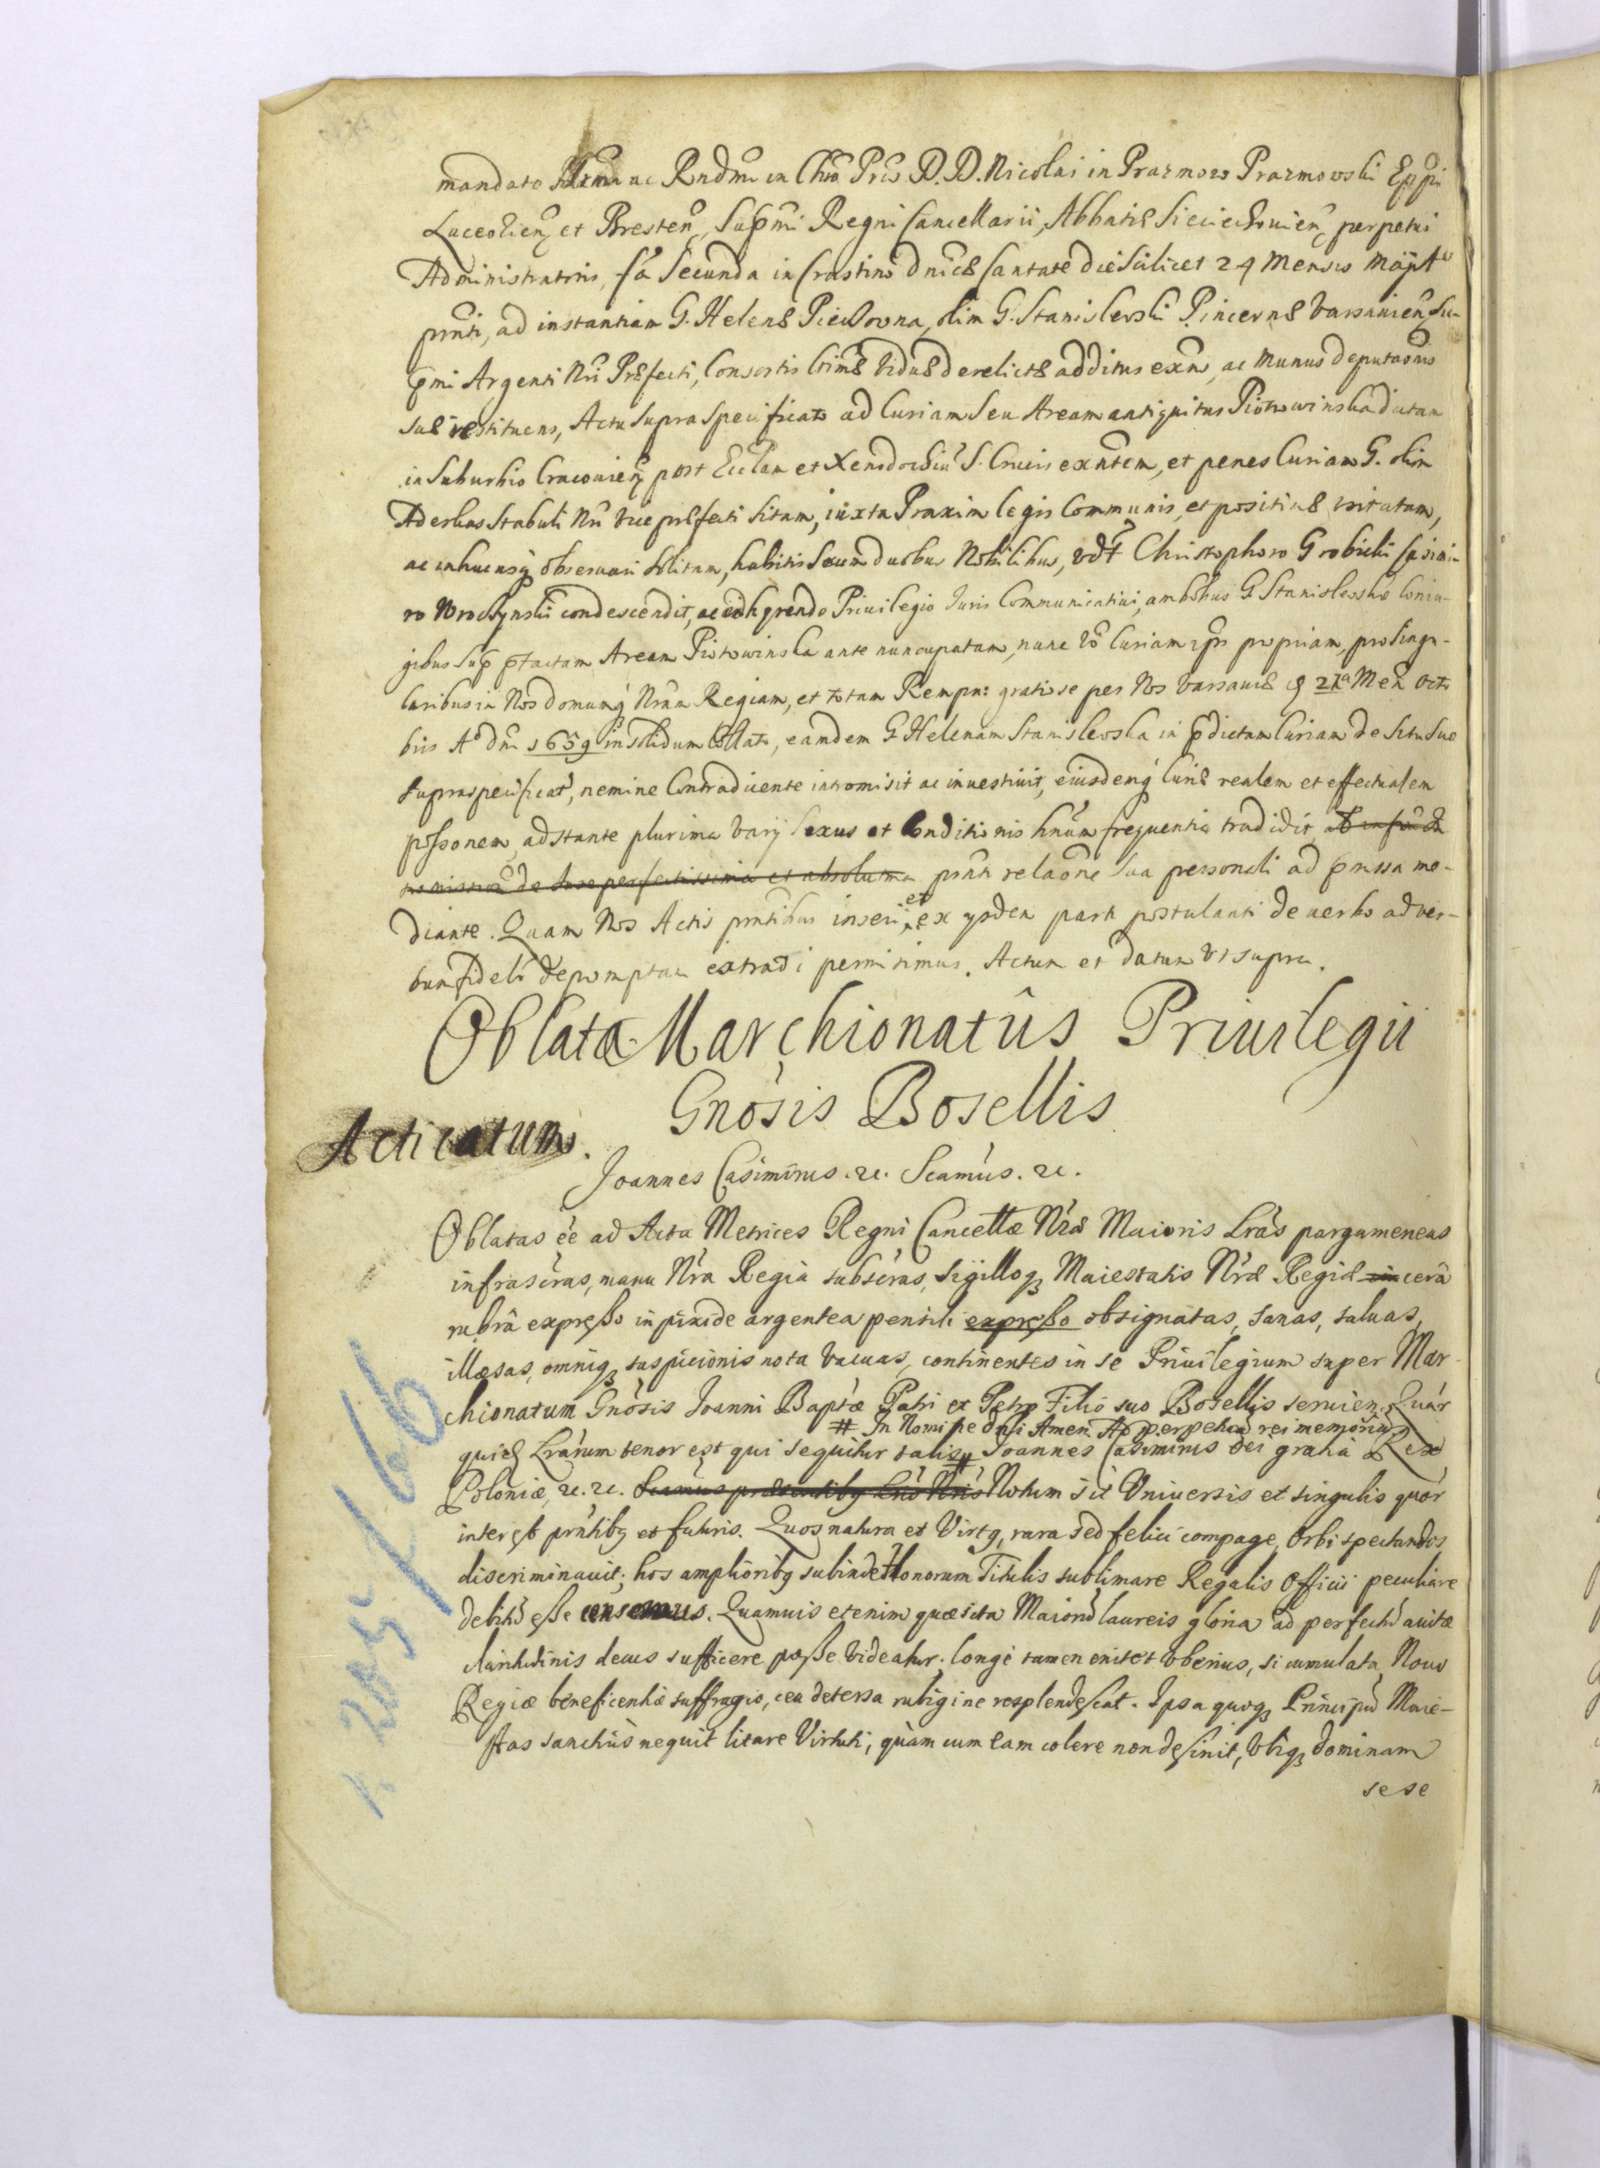 mandato Illrmi ac Rndmi in Chro Pris D. D. Nicolai in Prazmow Prazmowski Eppi
Luceorien et Bresten, Supmi Regni Cancellarii, Abbatis Sieciechouien, perpetui
Administratoris, fa Secunda in Crastino dnicæ Cantate die scilicet 24 Mensis Maÿ
prnti, ad instantiam G. Helenæ, olim G. Stanislewski Pincernæ Varsauien, Su-
pmi Argenti Nri Præfecti, Consortis Viduæ derelictæ additus exns, ac munus deputaonis
suæ restituens, Actu supra specificato ad Curiam seu Aream antiquitus Piotrowinska dictam
in Suburbio Cracouien post Ecclam et Xenodochiu S. Crucis exntem, et penes Curiam G. olim
Aderkas Stabuli Nri Vice præfecti sitam, iuxta Praxim legis Communis, et positiuæ usitatam,
ac inhucusq obseruari solitam, habitis secum duobus Nobilibus, vdt Christophoro Grobicki Casimi-
ro condescendit, ac Priuilegio Iuris Communicatiui, ambobus G Stanislewskie Coniu-
gibus sup ptactam Aream Piotrowinska ante nuncupatam, nunc vo Curiam ipsis propriam, pro singu-
laribus in Nos domumq Nram Regiam, et totam Rempn: gratiose per Nos Varsauiæ d 21a Men Octo
bris Ao dni 1659 in solidum collato, eamdem G Helenam Stanislewska in pdictam Curiam de situ suo
supraspecificat, nemine Contradicente intromisit ac inuestiuit, eiusdemq Curiæ realem et effectualem
possonem, adstante plurima varij sexus et Conditionis hnum frequentia tradidit
de Iure perfectissima et absoluta prnti relaone sua personali ad prmssa me-
diante. Quam Nos Actis prntibus inseri, et ex ysdem parti postulanti de uerbo ad ver-
bum fideli depromptam extradi permisimus. Actum et datum Ut supra.
Oblata Marchionatûs Priuilegii
Gnósis Bosellis
Acticatum.
Joannes Casimirus. &c. Scamús. &c.
Oblatas éé ad Acta Metrices Regni Cancellæ Nræ Maioris Lrás pargameneas
infrascras, manu Nra Regia subscras, sigilloq; Maiestatis Nræ Regiæ in cerâ
rubrâ expresso in pixide argentea pensili expresso obsignatas, sanas, saluas,
illæsas, omniq; suspicionis nota vacuas, continentes in se Priuilegium super Mar-
chionatum Gnósis Joanni Baptæ Patri et Petro Filio suo Bosellis seruien. Quár
# In Nomine dni Amen. Ad perpetuã rei memoriã
quid Lrárum tenor est qui sequitur talis # Joannes Casimirus dei gratia Rex
Poloniæ, &c. &c. Scamús præsentiby Lris Nris Notum sit Vniuersis et singulis quór
interest prntiby et futuris. Quos natura et Virtq, rara sed felici compage, Orbi spectandos
discriminauit, hos amplioriby subinde Honorum Titulis sublimare Regalis Officii peculiare
debitũ esse censemus. Quamuis etenim quæsita Maiorũ laureis gloria ad perfectũ auitæ
claritudinis decus sufficere posse videatur, longè tamen enitet vberius, si cumulata Nouo
Regiæ beneficentiæ suffragio, ceu detersa rubigine resplendescat. Ipsa quoq; Principũ Maie-
stas sanctiùs nequit litare Virtuti, quàm cum eam colere non desinit, vtiq; dominam
sese